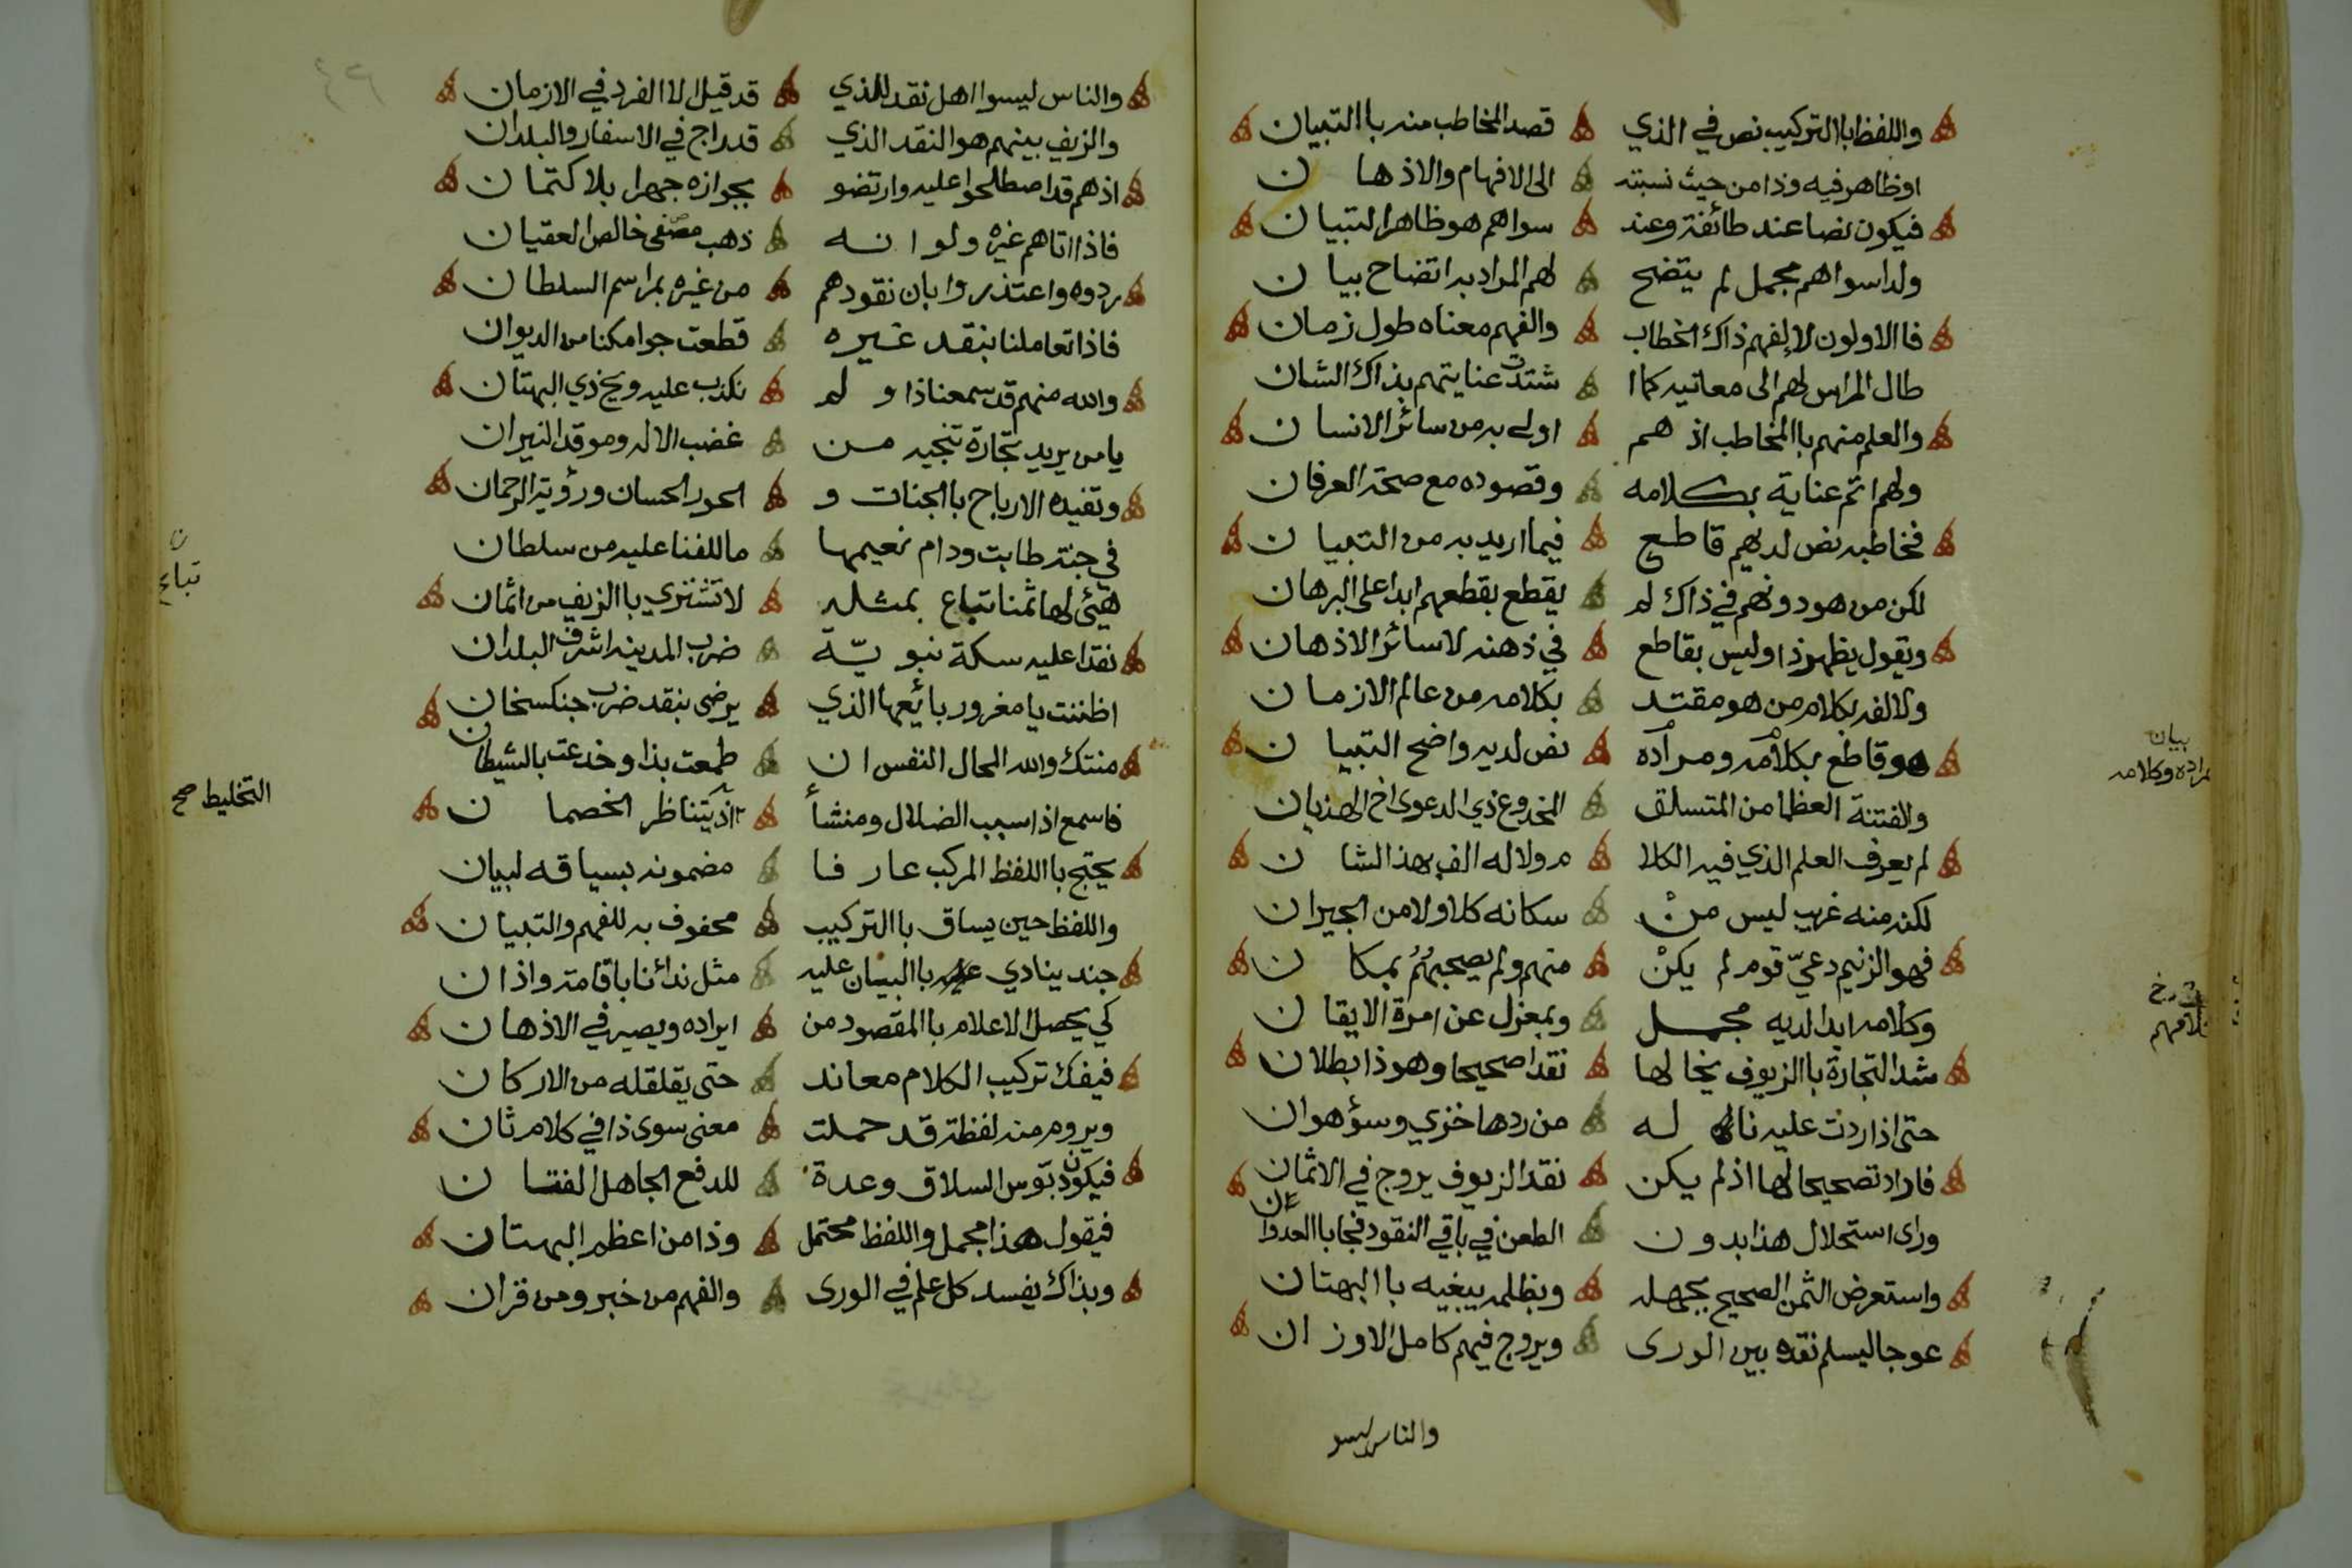 واللفظ باالتركيب نص في الذي قصد المخاطب منه باالتبيان
اوظاهر فيه وذا من حيث نسبته الى الافهام والاذهان
فيكون نصا عند طائفة وعند سواهم هو ظاهر التبيان
ولدا سواهم مجمل لم يتضح لهم المراد به اتضاح بيان
فاالاولون لالفهم ذاك الخطاب والفهم معناه طول زمان
طال المراس لهم الى معانيه كما اشتدت عنايتهم بذاك الشان
والعلم منهم باالمخاطب اذ هم اولى به من سائر الانسان
ولهم اتم عناية بكلامه وقصوده مع صحة العرفان
فخاطبه نص لديهم قاطع فيما اريد به من التبيان
لكن من هو دونهم في ذاك لم يقطع بقطعهم ابدا على البرهان
ويقول يظهر ذا وليس بقاطع في ذهنه لا سائر الاذهان
ولالفه بكلام من هو مقتد بكلامه من عالم الازمان
هو قاطع بكلامه ومراده نص لديه واضح التبيان
والفتنة العظما من المتسلق المخدوع ذي الدعوى اخ الهذيان
لم يعرف العلم الذي فيه الكلا م ولا له الف بهذا الشان
لكنه منه غريب ليس من سكانه كلا ولا من الجيران
فهو الزنيم دعيّ قوم لم يكن منهم ولم يصحبهم بمكان
وكلامه ابدا لديه مجمل وبمعزل عن امرة الايقان
شد التجارة باالزيوف يخالها نقدا صحيحا وهو ذا بطلان
حتى اذا ردت عليه ناله من ردها خزي وسؤ هوان
فاراد تصحيحا لها اذ لم يكن نقد الزيوف يروج في الاثمان
وراى استحلال هذا بدون الطعن في باقي النقود فجا باالعدوان
واستعرض الثمن الصحيح بجهله وبظلمه يبغيه باالبهتان
عوجا ليسلم نقده بين الورى ويروج فيهم كامل الاوزان
والناس ليسو
بيان
مراده وكلامه
والناس ليسوا اهل نقد للذي قد قيل الا الفرد في الازمان
والزيف بينهم هو النقد الذي قد راج في الاسفار والبلدان
اذ هم قد اصطلحوا عليه وارتضو بجوازه جهرا بلا كتمان
فاذا اتاهم غيره ولو انه ذهب مصفى خالص العقيان
ردوه واعتذروا بان نقودهم من غيره بمراسم السلطان
فاذا تعاملنا بنقد غيره قطعت جوامكنا من الديوان
والله منهم قد سمعنا ذا ولم نكذب عليه ويح ذي البهتان
يا من يريد تجارة تنجيه من غضب الاله وموقد النيران
وتفيده الارباح باالجنات و الحور الحسان ورؤية الرحمان
في جنة طابت ودام نعيمها ما للفنا عليه من سلطان
هيئ لها ثمنا تباع بمثله لا تشتري باالزيف من اثمان
نقدا عليه سكة نبويّة ضرب المدينه اشرف البلدان
اظننت يا مغرور بائعها الذي يرضى بنقد ضرب جنكسخان
منتك والله المحال النفس ان طمعت بذا وخدعت بالشيطان
فاسمع اذا سبب الضلال ومنشأ اذ يتناظر الخصمان
يحتج باللفظ المركب عارفا مضمونه بسياقه لبيان
واللفظ حين يساق باالتركيب محفوف به للفهم والتبيان
جند ينادي باالبيان عليه مثل ندائنا باقامة واذان
كي يحصل الاعلام باالمقصود من ايراده ويصير في الاذهان
فيفك تركيب الكلام معاند حتى يقلقله من الاركان
ويروم منه لفظة قد حملت معنى سوى ذا في كلام ثان
فيكون دبّوس السلاق وعدة للدفع الجاهل الفتان
فيقول هذا مجمل واللفظ محتمل وذا من اعظم البهتان
وبذاك يفسد كل علم في الورى والفهم من خبر ومن قران
ن
تباع
التخليط صح